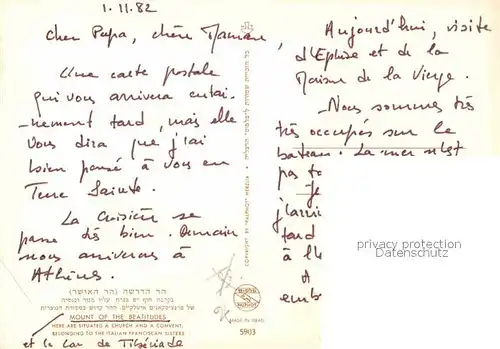 1.11.82
Cher Papa, chère Maman,
Une carte postale
qui vous arrivera certai-
nement tard, mais elle
vous dira que j'ai
bien pensé à vous en
Terre Sainte.
La croisière se
passe très bien. Demain
nous arrivons à
Athènes.
הר הדרשה (הר האושר)
MOUNT OF THE BEATITUDES
HERE ARE SITUATED A CHURCH AND A CONVENT,
BELONGING TO THE ITALIAN FRANCISCAN SISTERS
et le Lac de Tibériade
MADE IN ISRAEL
5903
Aujourd'hui, visite
d'Ephèse et de la
Maison de la Vierge.
Nous sommes très
très occupés sur le
bateau. La mer n'est
pas to
Je
j'arri
tard
à l'h
A
emb
privacy protection
Datenschutz